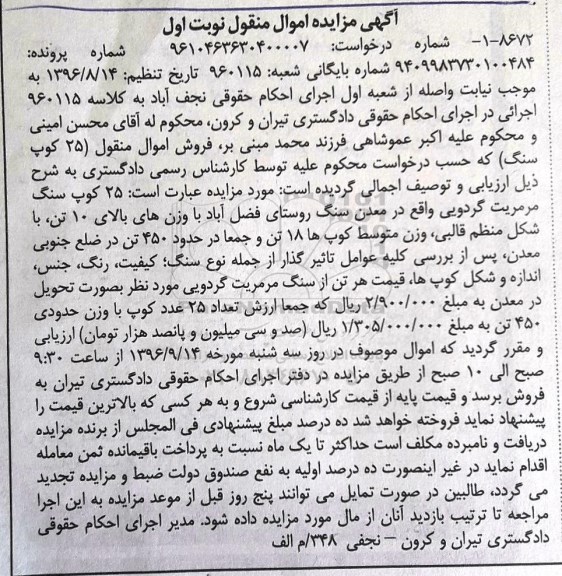 آگهی مزایده اموال منقول نوبت اول
۱-۸۶۷۲- شماره درخواست: ۹۶۱۰۴۶۳۶۳۰۴۰۰۰۰۷ شماره پرونده:
۹۴۰۹۹۸۳۷۳۰۱۰۰۴۸۴ شماره بایگانی شعبه: ۹۶۰۱۱۵ تاریخ تنظیم: ۱۳۹۶/۸/۱۴ به
موجب نیابت واصله از شعبه اول اجرای احکام حقوقی نجف آباد به کلاسه ۹۶۰۱۱۵
اجرائی در اجرای احکام حقوقی دادگستری تیران و کرون، محکوم له آقای محسن امینی
و محکوم علیه اکبر عموشاهی فرزند محمد مبنی بر، فروش اموال منقول (۲۵ کوپ
سنگ) که حسب درخواست محکوم علیه توسط کارشناس رسمی دادگستری به شرح
ذیل ارزیابی و توصیف اجمالی گردیده است: مورد مزایده عبارت است: ۲۵ کوپ سنگ
مرمریت گردویی واقع در معدن سنگ روستای فضل آباد با وزن های بالای ۱۰ تن، با
شکل منظم قالبی، وزن متوسط کوپ ها ۱۸ تن و جمعا در حدود ۴۵۰ تن در ضلع جنوبی
معدن، پس از بررسی کلیه عوامل تاثیر گذار از جمله نوع سنگ؛ کیفیت، رنگ، جنس،
اندازه و شکل کوپ ها، قیمت هر تن از سنگ مرمریت گردویی مورد نظر بصورت تحویل
در معدن به مبلغ ۲/۹۰۰/۰۰۰ ریال که جمعا ارزش تعداد ۲۵ عدد کوپ با وزن حدودی
۴۵۰ تن به مبلغ ۱/۳۰۵/۰۰۰/۰۰۰ ریال (صد و سی میلیون و پانصد هزار تومان) ارزیابی
و مقرر گردید که اموال موصوف در روز سه شنبه مورخه ۱۳۹۶/۹/۱۴ از ساعت ۹:۳۰
صبح الی ۱۰ صبح از طریق مزایده در دفتر اجرای احکام حقوقی دادگستری تیران به
فروش برسد و قیمت پایه از قیمت کارشناسی شروع و به هر کسی که بالاترین قیمت را
پیشنهاد نماید فروخته خواهد شد ده درصد مبلغ پیشنهادی فی المجلس از برنده مزایده
دریافت و نامبرده مکلف است حداکثر تا یک ماه نسبت به پرداخت باقیمانده ثمن معامله
اقدام نماید در غیر اینصورت ده درصد اولیه به نفع صندوق دولت ضبط و مزایده تجدید
می گردد، طالبین در صورت تمایل می توانند پنج روز قبل از موعد مزایده به این اجرا
مراجعه تا ترتیب بازدید آنان از مال مورد مزایده داده شود. مدیر اجرای احکام حقوقی
دادگستری تیران و کرون – نجفی ۳۴۸/م الف